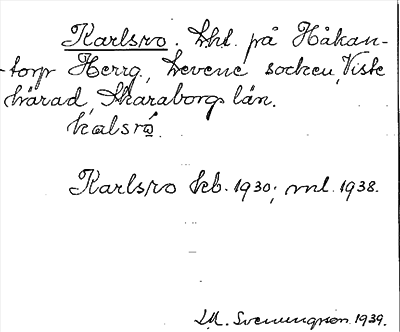 Karlsro. Lht. på Håkan-
torp Herrg., Levene socken, Viste
härad, Skaraborgs län.
kalsrω̄.
Karlsro kb. 1930; ml. 1938.
Svenungsson 1939.